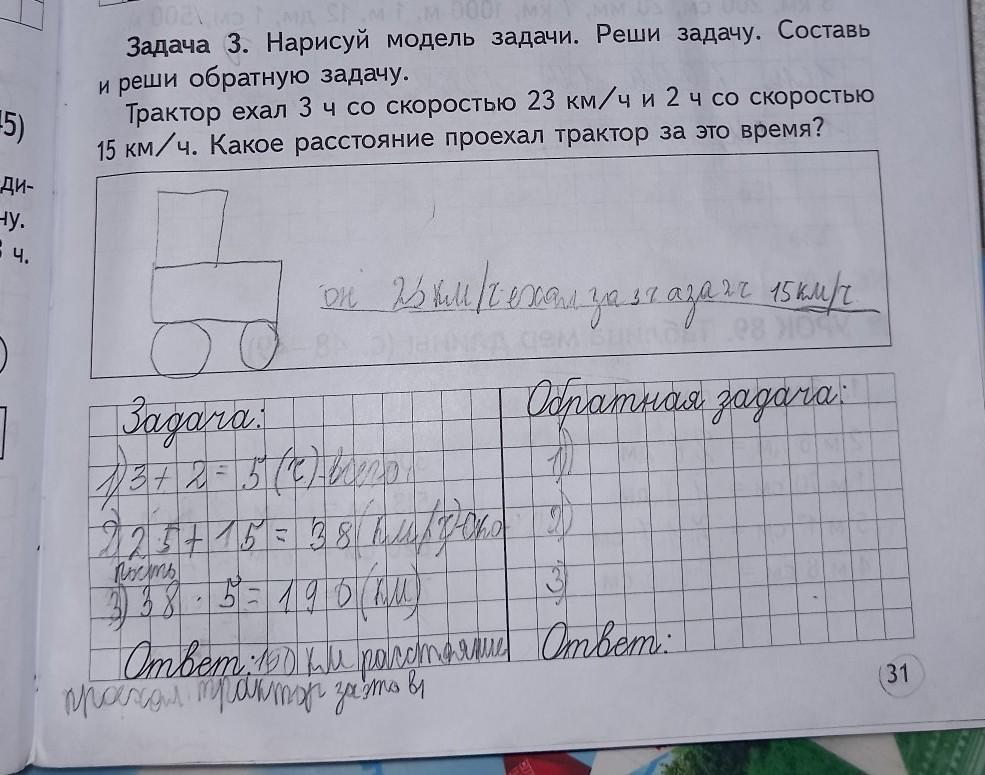 Задача 3. Нарисуй модель задачи. Реши задачу. Составь
и реши обратную задачу.
Трактор ехал 3 ч со скоростью 23 км/ч и 2 ч со скоростью
15 км/ч. Какое расстояние проехал трактор за это время?
45)
ди-
ну.
ч.
он 23 км/ч ехал за 3ч а за 2ч 15км/ч
Задача:
1) 3 + 2 = 5 (ч)-всего
2) 23 + 15 = 38 (км/ч)-ско
рость
3) 38 · 5 = 190 (км)
Ответ: 190 км расстояние
проехал трактор за это в
Обратная задача:
1)
2)
3)
Ответ:
31